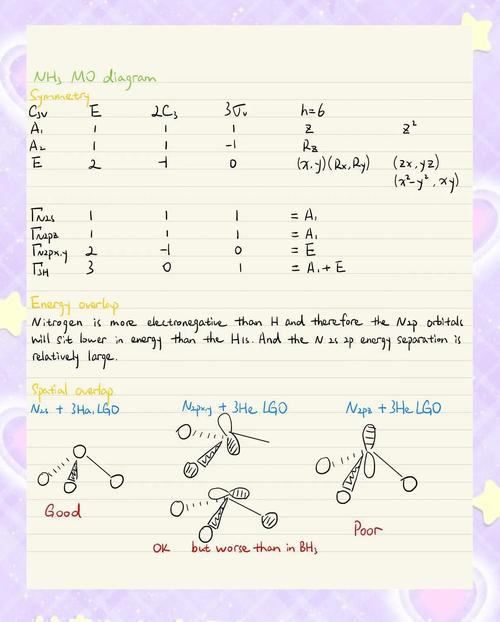 NH₃ MO diagram
Symmetry
C₃ᵥ E 2C₃ 3σᵥ h=6
A₁ 1 1 1 z z²
A₂ 1 1 -1 Rz
E 2 -1 0 (x,y)(Rx,Ry) (zx,yz)
(x²-y², xy)
ΓN2s 1 1 1 = A₁
ΓN2pz 1 1 1 = A₁
ΓN2px,y 2 -1 0 = E
Γ3H 3 0 1 = A₁+E
Energy overlap
Nitrogen is more electronegative than H and therefore the N2p orbitals
will sit lower in energy than the H1s. And the N 2s 2p energy separation is
relatively large.
Spatial overlap
N2s + 3Ha₁ LGO N2px,y + 3He LGO N2pz + 3He LGO
Good
Poor
OK but worse than in BH₃